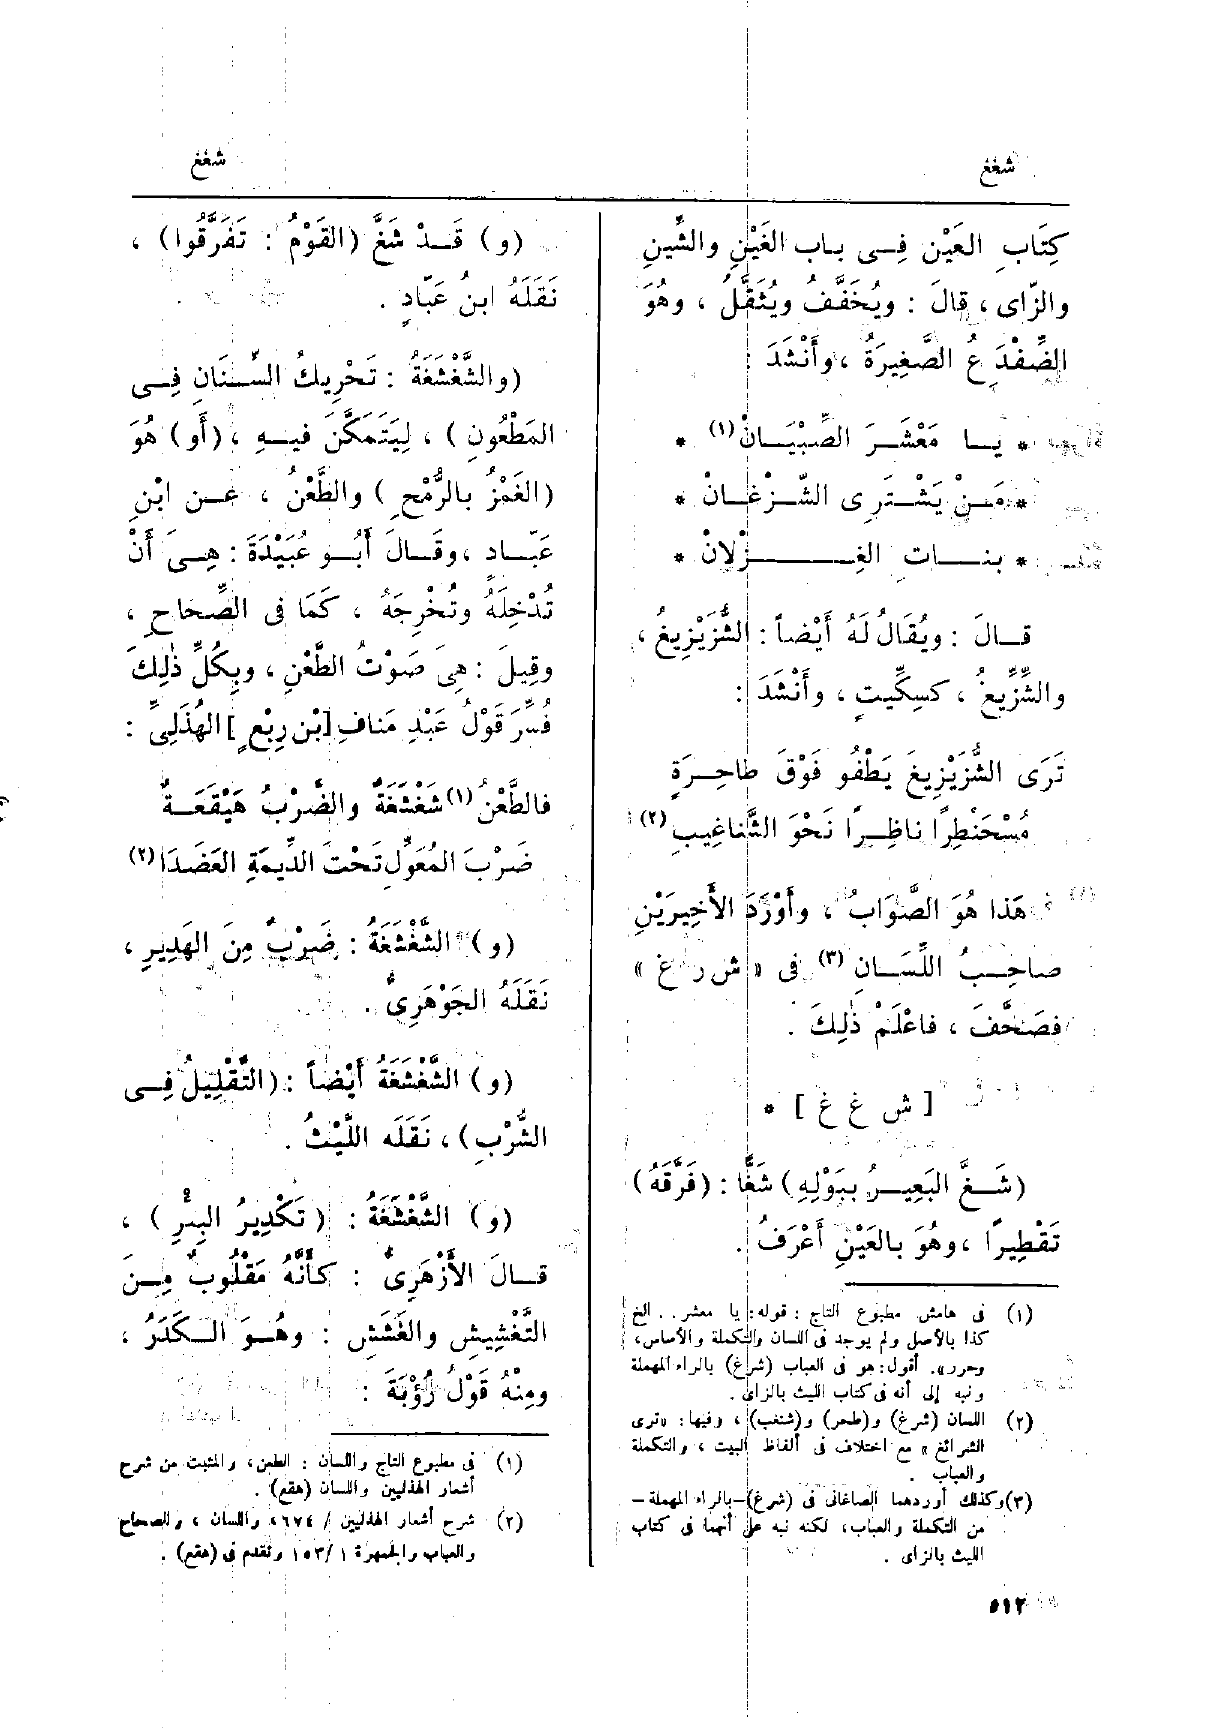 شغغ
شغغ
كِتَابِ العَيْن فِى بابِ الغَيْنِ والشَّينِ
والزّاى ، قالَ : ويُخَفَّفُ ويُثَقَّلُ ، وهُوَ
الضِّفْدَعُ الصَّغِيرَةُ ، وأَنْشَدَ :
* يا مَعْشَرَ الصِّبْيَانْ(١) *
* مَنْ يَشْتَرِى الشَّزْغَانْ *
* بنات الغِزْلانْ *
قالَ : ويُقَالُ لَهُ أَيْضاً : الشُّزَيْزِيغُ ،
والشِّزِّيغُ ، كسِكِّيتٍ ، وأَنْشَدَ :
تَرَى الشُّزَيْزِيغَ يَطْفُو فَوْقَ طاحِرَةٍ
مُسْحَنْطِرًا ناظِرًا نَحْوَ الشَّناغِيبِ(٢)
هَذا هُوَ الصَّوَابُ ، وأَوْرَدَ الأَخِيرَيْنِ
صاحِبُ اللِّسَانِ(٣) فى « ش ر غ »
فصَحَّفَ ، فاعْلَمْ ذٰلِكَ .
[ ش غ غ ] *
(شَغَّ البَعِيرُ بِبَوْلِهِ) شَغًّا : (فَرَّقَهُ)
تَقْطِيرًا ، وهُوَ بالعَيْنِ أَعْرَفُ .
(١) فى هامش مطبوع التاج : قوله : يا معشر . . الخ
كذا بالأصل ولم يوجد فى اللسان والتكملة والأساس ،
وحرر». أقول : هو فى العباب (شرغ) بالراء المهملة
ونبه إلى أنه فى كتاب الليث بالزاى .
(٢) اللسان (شرغ) و(طحر) و(شنغب) ، وفيها : «ترى
الشرائغ » مع اختلاف فى ألفاظ البيت ، والتكملة
والعباب .
(٣) وكذلك أوردهما الصاغانى فى (شرغ)–بالراء المهملة–
من التكملة والعباب ، لكنه نبه على أنهما فى كتاب
الليث بالزاى .
(و) قَدْ شَغَّ (القَوْمُ : تَفَرَّقُوا) ،
نَقَلَهُ ابنُ عَبّادٍ .
(والشَّغْشَغَةُ : تَحْرِيكُ السِّنَانِ فِى
المَطْعُونِ) ، لِيَتَمَكَّنَ فيهِ ، (أَو) هُوَ
(الغَمْزُ بالرُّمْحِ) والطَّعْنُ ، عن ابْنِ
عَبّادٍ ، وقَالَ أَبُو عُبَيْدَةَ : هِىَ أَنْ
تُدْخِلَهُ وتُخْرِجَهُ ، كَمَا فى الصِّحَاحِ ،
وقِيلَ : هِىَ صَوْتُ الطَّعْنِ ، وبِكُلِّ ذٰلِكَ
فُسِّرَ قَوْلُ عَبْدِ مَنافِ [بْنِ رِبْعٍ] الهُذَلِىِّ :
فالطَّعْنُ(١) شَغْشَغَةٌ والضَّرْبُ هَيْقَعَةٌ
ضَرْبَ المُعَوِّلِ تَحْتَ الدِّيمَةِ العَضَدَا(٢)
(و) الشَّغْشَغَةُ : ضَرْبٌ مِنَ الهَدِيرِ ،
نَقَلَهُ الجَوْهَرِىُّ .
(و) الشَّغْشَغَةُ أَيْضاً : (التَّقْلِيلُ فِى
الشُّرْبِ) ، نَقَلَه اللَّيْثُ .
(و) الشَّغْشَغَةُ : (تَكْدِيرُ البِئْرِ) ،
قالَ الأَزْهَرِىُّ : كأَنَّهُ مَقْلُوبٌ مِنَ
التَّغْشِيشِ والغَشَشِ : وهُوَ الكَدَرُ ،
ومِنْهُ قَوْلُ رُؤْبَةَ :
(١) فى مطبوع التاج واللسان : الطعن ، والمثبت من شرح
أشعار الهذليين واللسان (هقع) .
(٢) شرح أشعار الهذليين / ٦٧٤ ، واللسان ، والصحاح
والعباب والجمهرة ١ /١٥٣ وتقدم فى (هقع) .
٥١٢